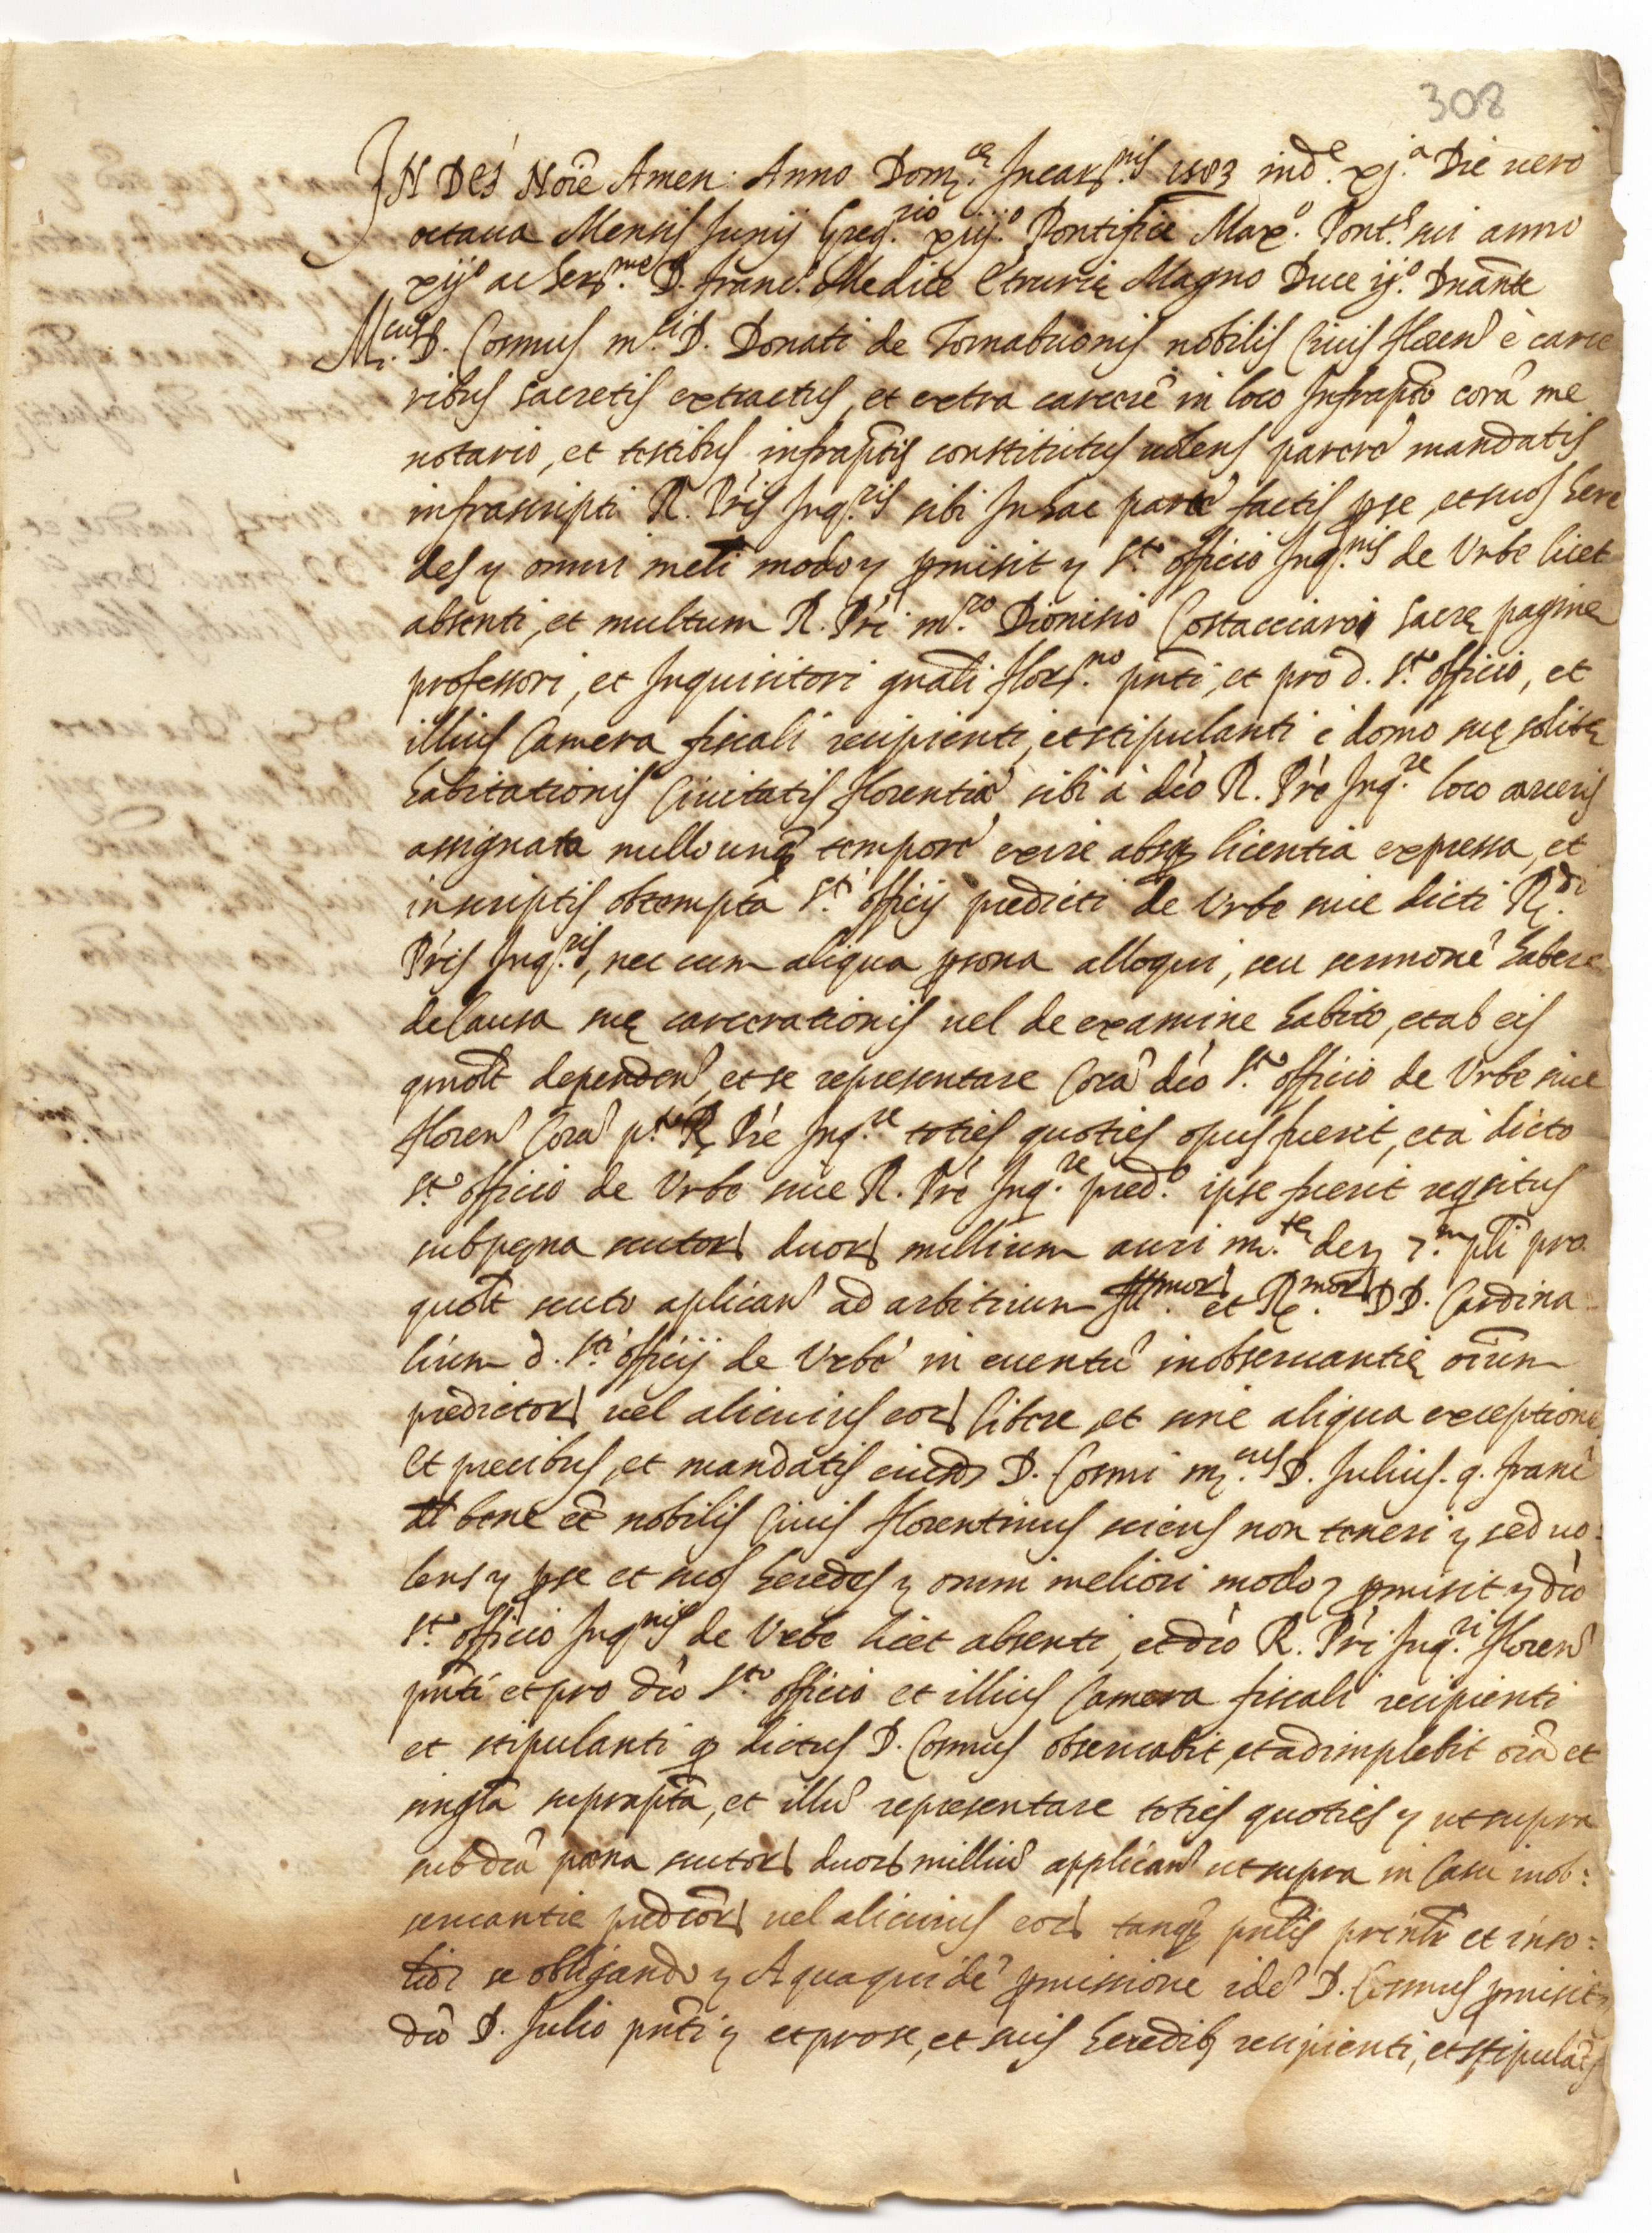 308
IN Dei Noiē Amen: Anno Dom.cę Incarn.nis 1583 ind.e xj.a Die uero
octaua Mensis Junij Greg.rio xiij.o Pontifice Max.o Pont.s sui anno
xij.o ac Ser.mo D. Franc.o Medice Etrurię Magno Duce ij.o Dnānte
M.cus D. Cosmus m.ci D. Donati de Tornabuonis nobilis Ciuis floren è carce
ribus sacretis extractus, et extra carcerē in loco Infrapto corā me
notario, et testibus infraptis constitutus uolens parere mandatis
infrascripti R. Pris Inq.ris sibi In hac parte factis p se, et suos here
des y omni meli modo y pmisit y S.to officio Inq.nis de Vrbe licet
absenti, et multum R. Pri m.ro Dionisio Costacciaro Sacrę pagine
professori, et Inquisitori gnali flor.no pnti, et pro d. S.to officio, et
illius Camera fiscali recipienti, et stipulanti è domo suę solitę
habitationis Ciuitatis florentiae sibi à dco R. Pre Inq.re loco carceris
assignata nullo unq tempore exire absq licentia expressa, et
in scriptis obtempta S.ti officij predicti de Vrbe siue dicti R.di
Pris Inq.ris, nec cum aliqua psona alloqui, seu sermonē habere
de Causa suę carcerationis uel de examine habito, et ab eis
qmolt dependen, et se representare Corā dco S.to officio de Vrbe siue
floren Corā p.to R. Pre Inq.re toties quoties opus fuerit, et à dicto
S.to officio de Vrbe siue R. Pre Inq.re pred.o ipse fuerit reqsitus
sub pęna scutor duor millium auri m.tę de y 7.m pli pro
quolt scuto aplican ad arbitrium Ill.mor et R.mor DD. Cardina=
lium d. S.ti officij de Vrbe in euentū inobseruantię oium
predictor uel alicuius eor libere, et sine aliqua exceptione
Et precibus, et mandatis eiusd D. Cosmi m.cus D. Julius q. Franc
del bene et nobilis Ciuis florentinus sciens non teneri y sed uo=
lens y p se et suos heredes y omni meliori modo y pmisit y dco
S.to officio Inq.nis de Vrbe licet absenti, et dco R. Pri Inq.ri floren
pnti et pro dco S.to officio et illius Camera fiscali recipienti
et stipulanti q dictus D. Cosmus obseruabit, et adimplebit oia et
singla suprapta, et illū representare toties quoties y ut supra
sub dca pena scutor duor milliū applican ut supra in Casu inob=
seruantie predcor uel alicuius eor tanq pnlis prinlr et inso=
lidr se obligando y A qua quidē pmissione idē D. Cosmus pmisit
dco D. Julio pnti y et pro se, et suis heredib recipienti, et stipulati